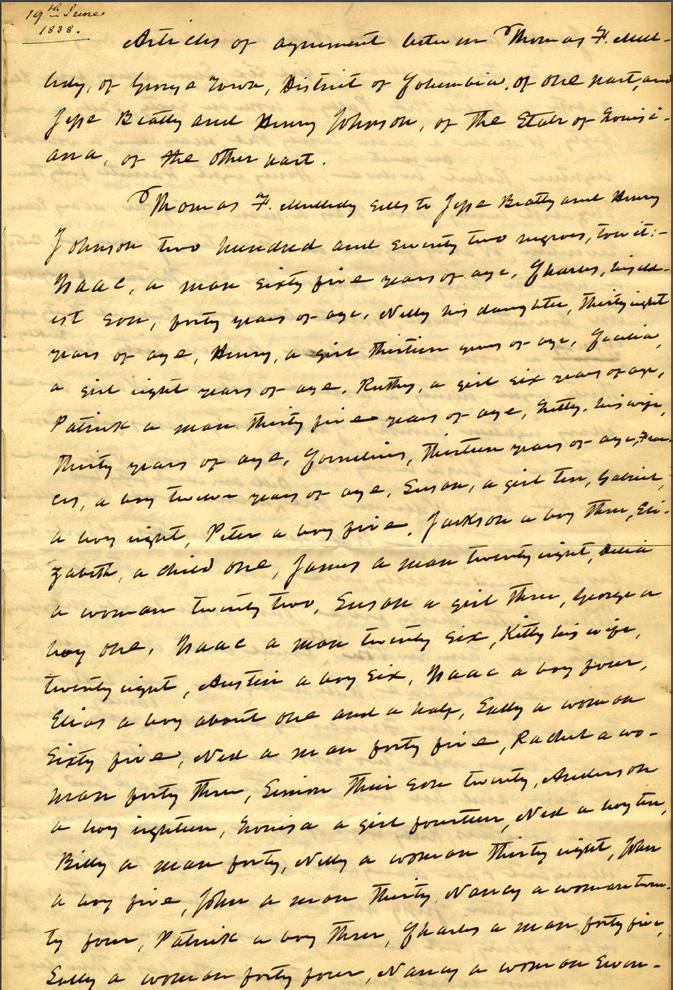 19th June
1838.
Articles of agreement between Thomas F. Mul-
ledy, of George Town, District of Columbia, of one part, and
Jesse Beatty and Henry Johnson, of the State of Louisi-
ana, of the other part.
Thomas F. Mulledy sells to Jesse Beatty and Henry
Johnson two hundred and seventy two negroes, to wit:-
Isaac, a man sixty five years of age, Charles, his eld-
est son, forty years of age, Nelly his daughter, thirty eight
years of age, Henny, a girl thirteen years of age, Cecilia,
a girl eight years of age, Ruthy, a girl six years of age,
Patrick a man thirty five years of age, Letty, his wife,
thirty years of age, Cornelius, thirteen years of age, Fran-
cis, a boy twelve years of age, Susan, a girl ten, Gabriel,
a boy eight, Peter a boy five, Jackson a boy three, Eli-
zabeth, a child one, James a man twenty eight, Delia
a woman twenty two, Susan a girl three, George a
boy one, Isaac a man twenty six, Kitty his wife,
twenty eight, Austin a boy six, Isaac a boy four,
Elias a boy about one and a half, Sally a woman
sixty five, Ned a man forty five, Rachel a wo-
man forty three, Simon their son twenty, Anderson
a boy eighteen, Louisa a girl fourteen, Ned a boy ten,
Billy a man forty, Nelly a woman thirty eight, John
a boy five, John a man thirty, Nancy a woman twen-
ty four, Patrick a boy three, Charles a man forty five,
Sally a woman forty four, Nancy a woman seven-